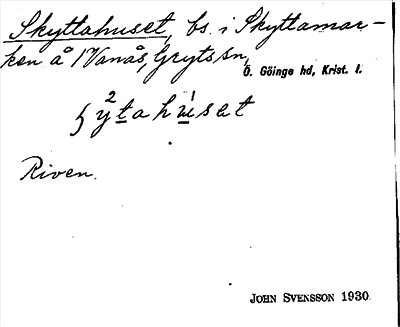 Skyttahuset, bs. i Skyttamar-
ken å 1 Vanås, Gryts sn,
Ö. Göinge hd, Krist. l.
Riven.
JOHN SVENSSON 1930.